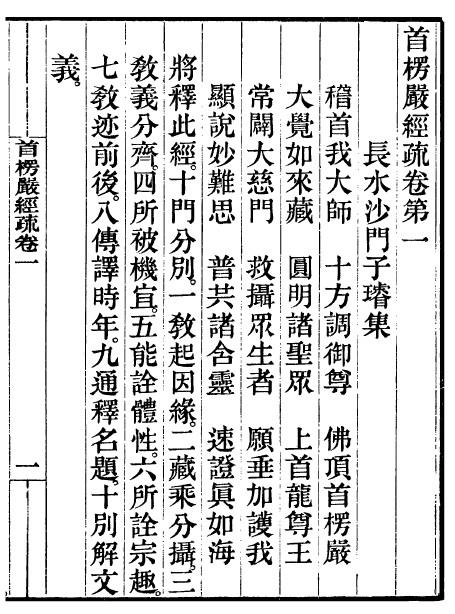 首楞嚴經疏卷第一
長水沙門子璿集
稽首我大師　十方調御尊　佛頂首楞嚴
大覺如來藏　圓明諸聖眾　上首龍尊王
常闢大慈門　救攝眾生者　願垂加護我
顯說妙難思　普共諸含靈　速證眞如海
將釋此經。十門分別。一敎起因緣。二藏乘分攝。三
敎義分齊。四所被機宜。五能詮體性。六所詮宗趣。
七敎迹前後。八傳譯時年。九通釋名題。十別解文
義。
首楞嚴經疏卷一
一